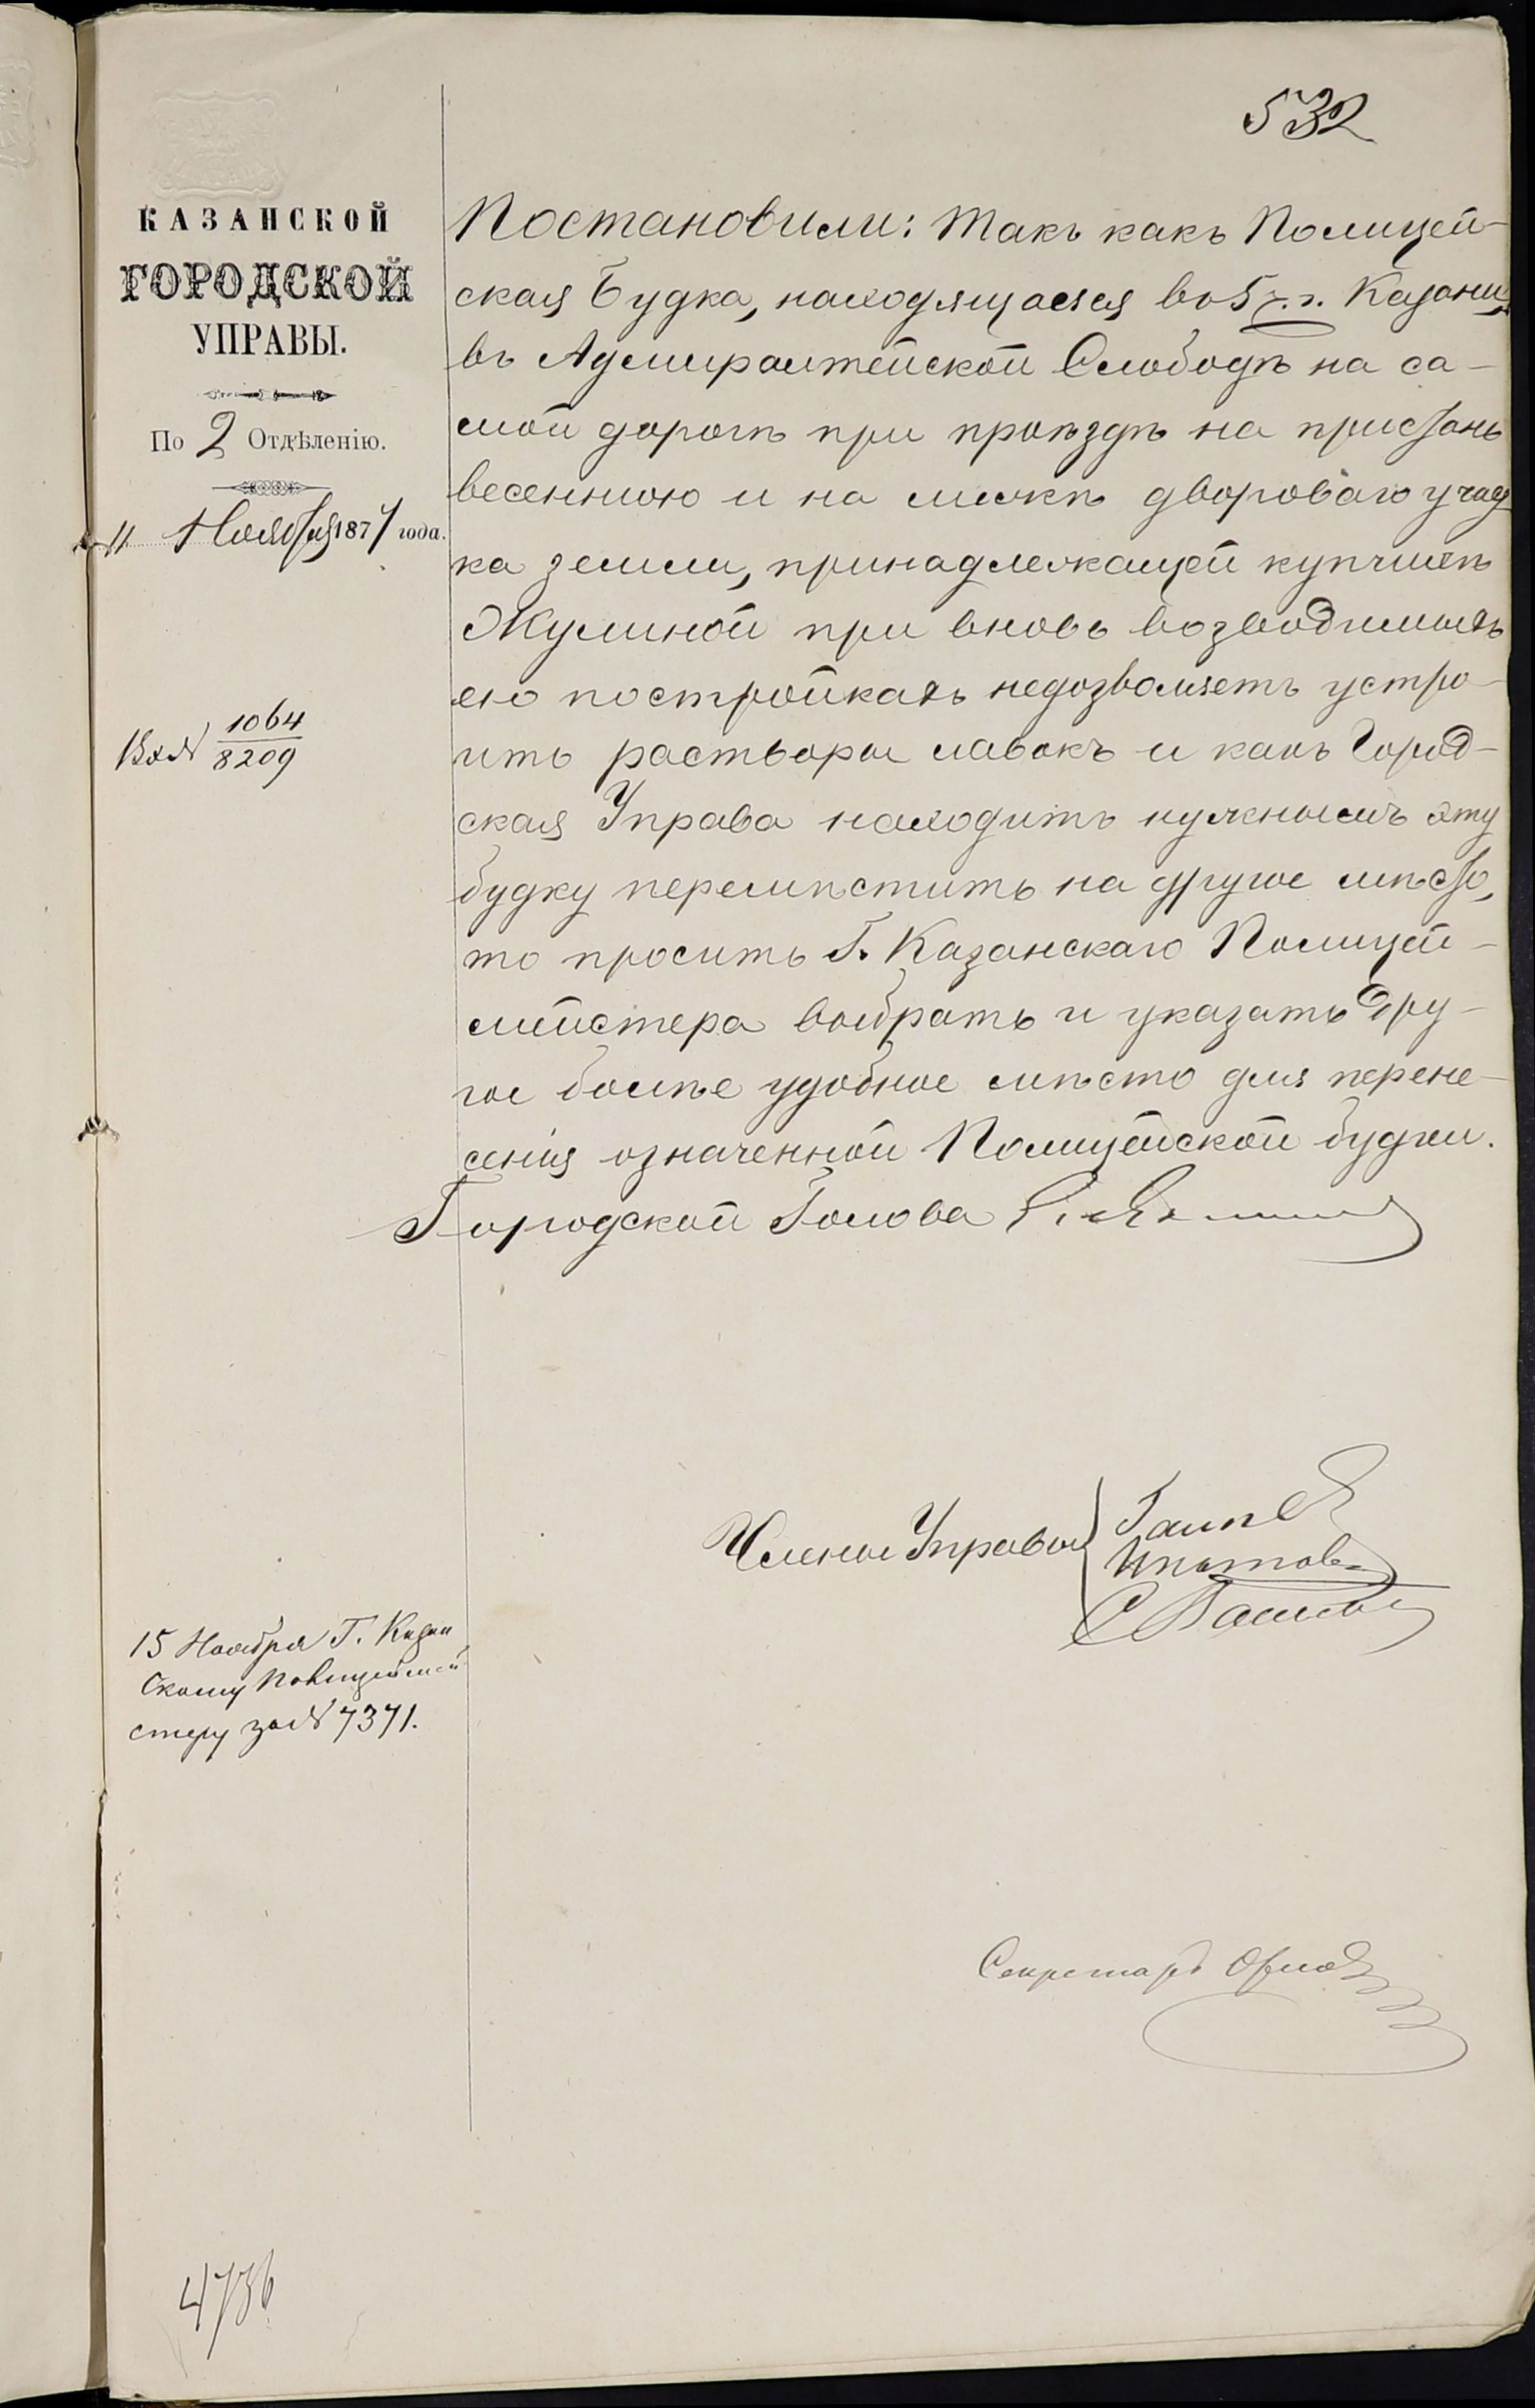 532
КАЗАНСКОЙ
ГОРОДСКОЙ
УПРАВЫ.
По 2 Отдѣленію.
11 Ноября 1871 года.
Вх №
1064
8209
Постановили: Такъ какъ Полицей-
ская Будка, находящаяся во 5 ч. г. Казани,
въ Адмиралтейской Слободѣ на са-
мой дорогѣ при проѣздѣ на пристань
весеннюю и на межѣ двороваго учас
ка земли, принадлежащей купчихѣ
Жулиной при вновь возводимыхъ
ею постройкахъ недозволяетъ устро-
ить растворы лавокъ и какъ Город-
ская Управа находитъ нужнымъ эту
будку перемѣстить на другое мѣсто,
то просить Г. Казанскаго Полицей-
мейстера выбрать и указать дру-
гое болѣе удобное мѣсто для перене-
сенія означенной Полицейской будки.
Городской Голова
Члены Управы
15 Ноября Г. Казан
скому Полицеймей
стеру за № 7371.
Секретарь Орлов
4736